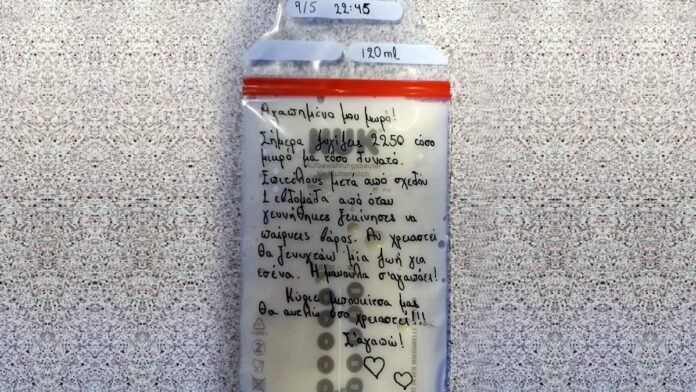 9/5 22:45
120ml
Αγαπημένο μου μωρό!
NUK
Σήμερα ζυγίζεις 2250 τόσο
μικρό μα τόσο δυνατό.
Επιτέλους μετα από σχεδον
1 εβδομάδα από όταν
γεννήθηκες ξεκίνησες να
παίρνεις βάρος. Αν χρειαστεί
θα ξενυχτάω μία ζωή για
εσένα. Η μανούλα σ'αγαπάει!
Κύριε μπουκίτσα μας
θα όσο χρειαστεί!!!
Σ'αγαπώ!